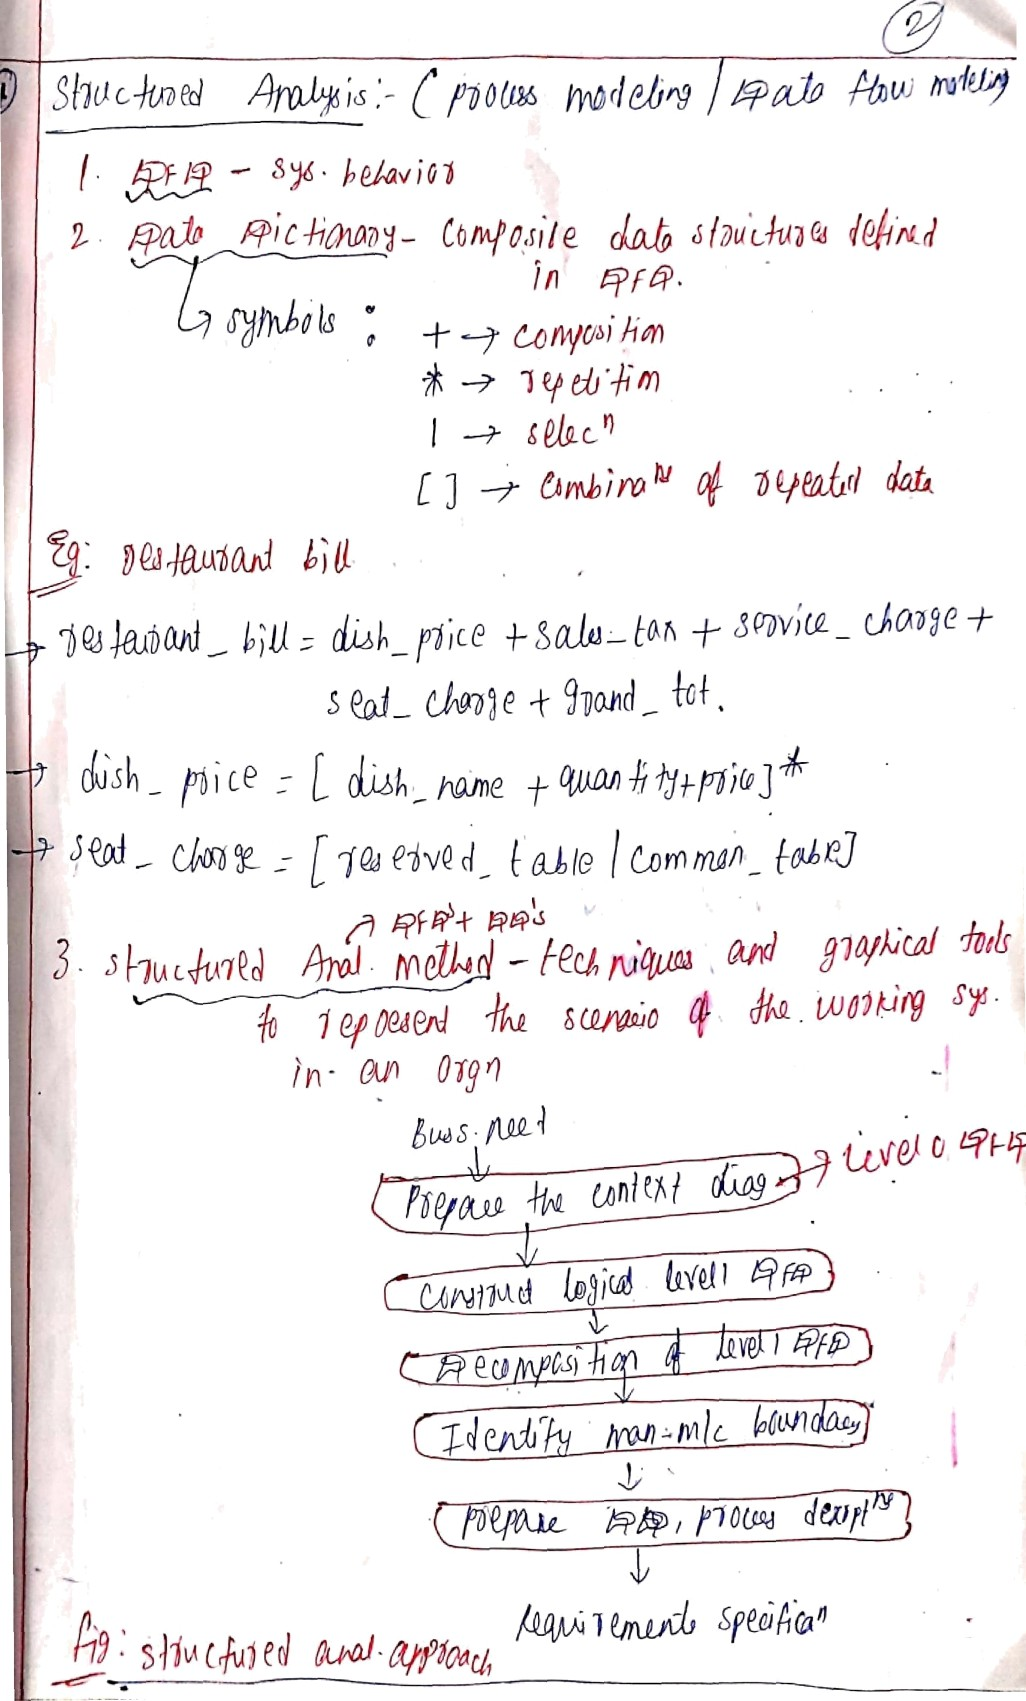 2
Structured Analysis:- ( process modeling / Data flow modeling
1. DFD - sys. behavior
2. Data Dictionary - Composite data structures defined
in DFD.
↳ symbols :
+ → composition
* → repetition
| → selecn
[ ] → Combinatn of repeated data
Eg: restaurant bill
→ restaurant_bill = dish_price + sales_tax + service_charge +
seat_charge + grand_tot.
→ dish_price = [ dish_name + quantity + price ]*
→ seat_charge = [ reserved_table / common_table]
↗ DFD's + DD's
3. structured Anal. method - techniques and graphical tools
to represent the scenario of the working sys.
in an orgn
Buss. need
↓
Prepare the context diag → level 0 DFD
↓
Construct logical level 1 DFD
↓
Decomposition of level 1 DFD
↓
Identify man-m/c boundary
↓
Prepare DD, process descriptn
↓
requirements specifican
fig: structured anal. approach